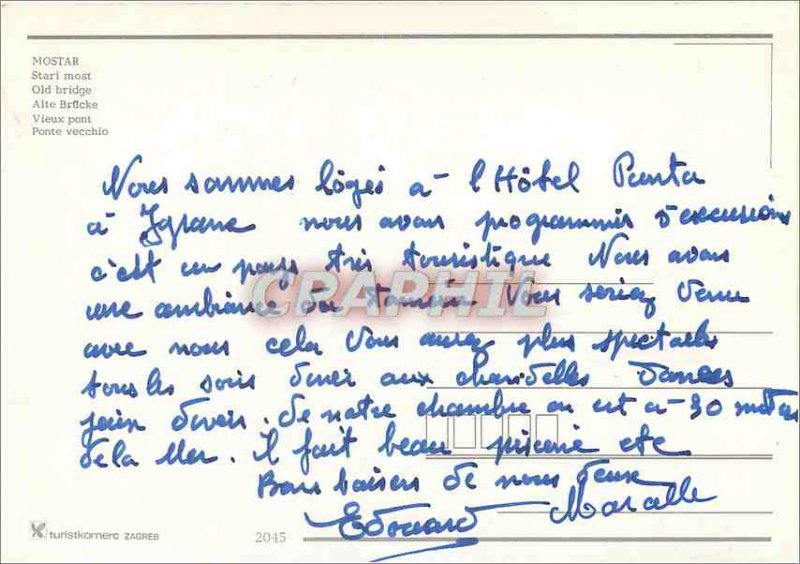 MOSTAR
Stari most
Old bridge
Alte Brücke
Vieux pont
Ponte vecchio
Nous sommes logés à l'Hôtel Punta
à Igrane nous avons programmés d'excursions
c'est un pays très touristique Nous avons
une ambiance du Vous seriez Venu
avec nous cela Vous aurez plus spectacles
tous les soirs diner aux chandelles Danses
jeux divers. de notre chambre on est à 30 mètres
de la Mer. il fait beau piscine etc
Bons baisers de nous deux
Edouard Marcelle
CPAPHIL
turistkomerc ZAGREB
2045